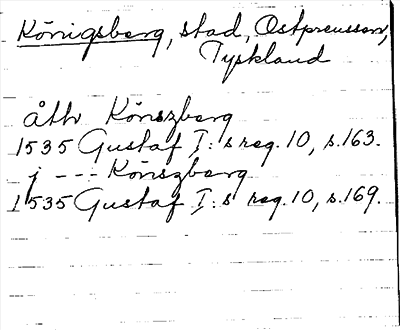 Königsberg, stad, Ostpreussen,
Tyskland
åthr Könszberg
1535 Gustaf I:s reg. 10, s. 163.
j --- Könszberg
1535 Gustaf I:s reg. 10, s. 169.